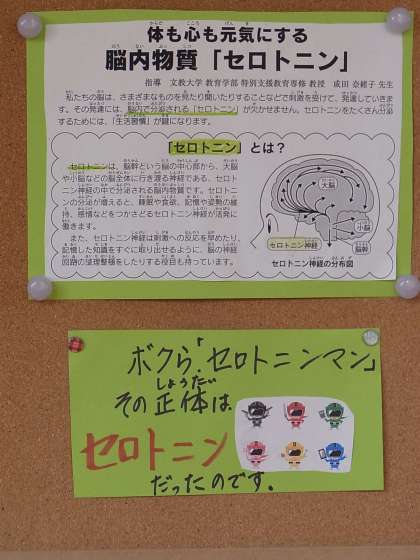 体も心も元気にする
脳内物質「セロトニン」
指導 文教大学 教育学部 特別支援教育専修 教授 成田 奈緒子 先生
私たちの脳は、さまざまなものを見たり聞いたりすることなどで刺激を受けて、発達していきま
す。その発達には、脳内で分泌される「セロトニン」が欠かせません。セロトニンをたくさん分泌
するためには、「生活習慣」が鍵になります。
「セロトニン」とは？
セロトニンは、脳幹という脳の中心部から、大脳
や小脳などの脳全体に行き渡る神経である、セロト
ニン神経の中で分泌される脳内物質です。セロトニ
ンの分泌が増えると、睡眠や食欲、記憶や姿勢の維
持、感情などをつかさどるセロトニン神経が活発に
働きます。
また、セロトニン神経は刺激への反応を早めたり、
記憶した知識をすぐに取り出せるように、脳の神経
回路の整理整頓をしたりする役目も持っています。
大脳
小脳
脳幹
セロトニン神経
セロトニン神経の分布図
ボクら「セロトニンマン」
しょうたい
その正体は
セロトニン
だったのです。